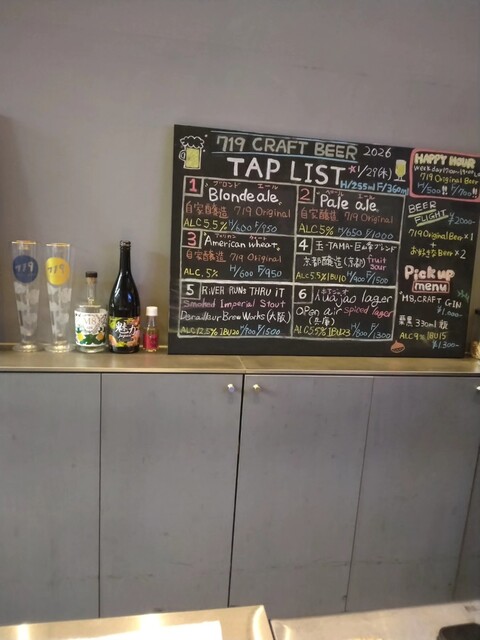 719 CRAFT BEER 2026
TAP LIST 1/29(木)
H/255ml F/360ml
1 ブロンド エール
Blonde ale
自家醸造 719 Original
ALC 5.5% H/600 F/950
2 ペール エール
Pale ale
自家醸造 719 Original
ALC 5% H/650 F/1000
3 アメリカン ウィート
American wheat
自家醸造 719 Original
ALC. 5% H/600 F/950
4 玉-TAMA-巨峰ブレンド
京都醸造(京都) fruit sour
ALC 5.5% IBU10 H/900 F/1500
5 RIVER RUNS THRU iT
Smoked Imperial Stout
Derailleur Brew Works (大阪)
ALC 12.5% IBU20 H/900 F/1500
6 lager
open air spiced lager
(兵庫)
ALC 5.5% IBU23 H/800 F/1300
HAPPY HOUR
weekday
719 Original Beer
H/500 F/700
BEER
FLIGHT ¥2000-
719 Original Beer × 1
+
お好きなBeer × 2
Pick up
menu
M8, CRAFT GIN
¥1,000-
330ml 瓶
ALC 9% IBU15
¥1300-
719
719
魅力